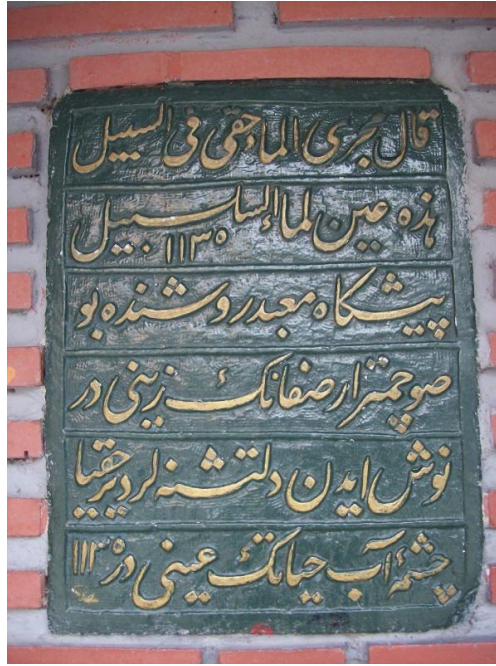 قال مجرى الما حقى فى السبيل
هذه عين لماء السلسبيل ١١٣٥
پيشكاه معبدر وشنده بو
صو چمنزار صفانك زينى در
نوش ايدن دلتشنه لر دير حقيا
چشمۀ آب حياتك عينى در ١١٣٥